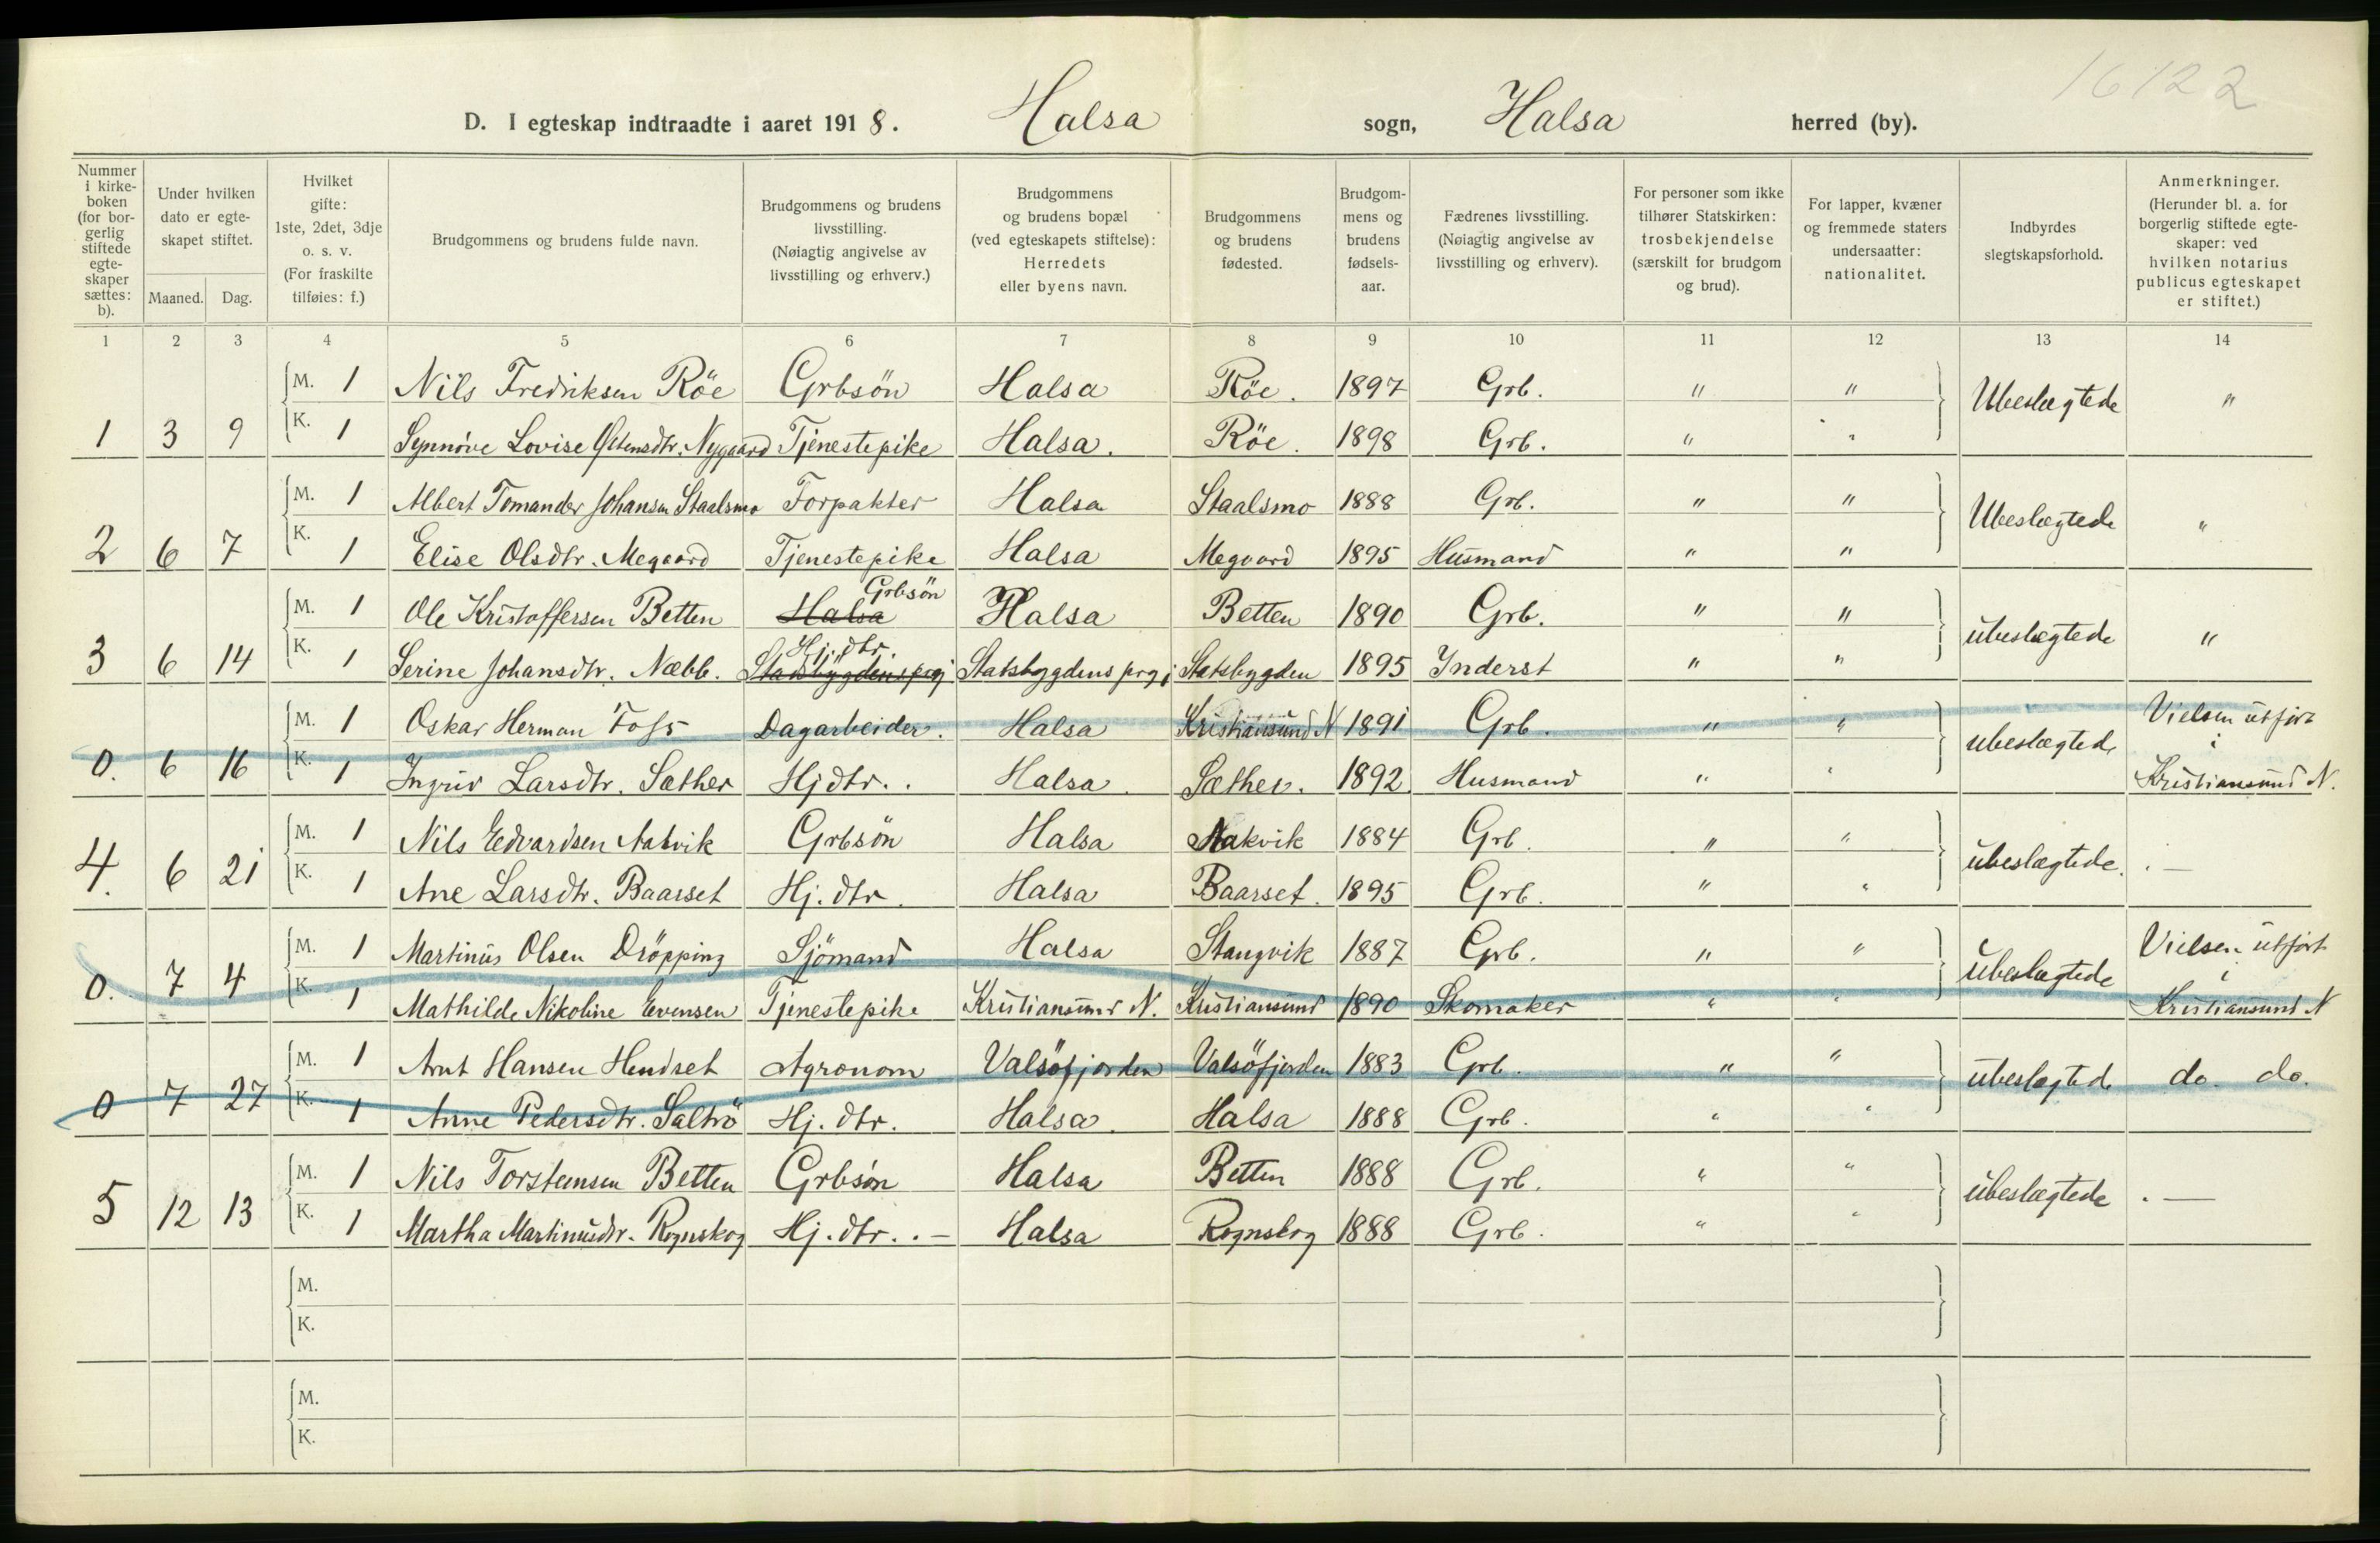 16122
D. I egteskap indtraadte i aaret 1918. Halsa sogn, Halsa herred (by).
Nummer i kirkeboken (for borgerlig stiftede egteskaper sættes: b).
Under hvilken dato er egteskapet stiftet.
Maaned. Dag.
Hvilket gifte: 1ste, 2det, 3dje o. s. v. (For fraskilte tilføies: f.)
Brudgommens og brudens fulde navn.
Brudgommens og brudens livsstilling. (Nøiagtig angivelse av livsstilling og erhverv.)
Brudgommens og brudens bopæl (ved egteskapets stiftelse): Herredets eller byens navn.
Brudgommens og brudens fødested.
Brudgommens og brudens fødselsaar.
Fædrenes livsstilling. (Nøiagtig angivelse av livsstilling og erhverv).
For personer som ikke tilhører Statskirken: trosbekjendelse (særskilt for brudgom og brud).
For lapper, kvæner og fremmede staters undersaatter: nationalitet.
Indbyrdes slegtskapsforhold.
Anmerkninger. (Herunder bl. a. for borgerlig stiftede egteskaper: ved hvilken notarius publicus egteskapet er stiftet.)
1 2 3 4 5 6 7 8 9 10 11 12 13 14
M. 1 Nils Fredriksen Röe Grbsön Halsa Röe. 1897 Grb. " " Ubeslægtede "
1 3 9 K. 1 Synnöve Lovise Ostensdtr. Nygaard Tjenestepike Halsa. Röe. 1898 Grb. " "
M. 1 Albert Tomander Johansen Staalsmo Forpakter Halsa Staalsmo 1888 Grb. " " Ubeslægtede "
2 6 7 K. 1 Elise Olsdtr. Megaard Tjenestepike Halsa Megaard 1895 Husmand " "
M. 1 Ole Kristoffersen Betten Halsa Grbsön Halsa Betten 1890 Grb. " " ubeslægtede "
3 6 14 K. 1 Serine Johansdtr. Næbb. Statsbygdens prgj Hj. dtr. Statsbygdens prgj Statsbygden 1895 Inderst " "
M. 1 Oskar Herman Foss Dagarbeider. Halsa Kristiansund N 1891 Grb. " " ubeslægtede Vielsen utført i Kristiansund N.
0. 6 16 K. 1 Ingrid Larsdtr. Sæther Hjdtr. Halsa. Sæther. 1892 Husmand " "
M. 1 Nils Edvardsen Aakvik Grbsön Halsa Aakvik 1884 Grb. " " ubeslægtede. . —
4. 6 21 K. 1 Ane Larsdtr. Baarset Hj. dtr. Halsa Baarset. 1895 Grb. " "
M. 1 Martinus Olsen Dröpping Sjömand Halsa Stangvik 1887 Grb. " " ubeslægtede Vielsen utført i Kristiansund N
0. 7 4 K. 1 Mathilde Nikoline Evensen Tjenestepike Kristiansund N. Kristiansund 1890 Skomaker " "
M. 1 Arnt Hansen Hendset Agronom Valsöfjorden Valsöfjorden 1883 Grb. " " ubeslægtede do. do.
0 7 27 K. 1 Anne Pedersdtr. Saltrö Hj. dtr. Halsa. Halsa 1888 Grb. " "
M. 1 Nils Torstensen Betten Grbsön Halsa Betten 1888 Grb. " " ubeslægtede . —
5 12 13 K. 1 Martha Martinusdtr. Rognskog Hj. dtr. . — Halsa Rognskog 1888 Grb. " "
M.
K.
M.
K.